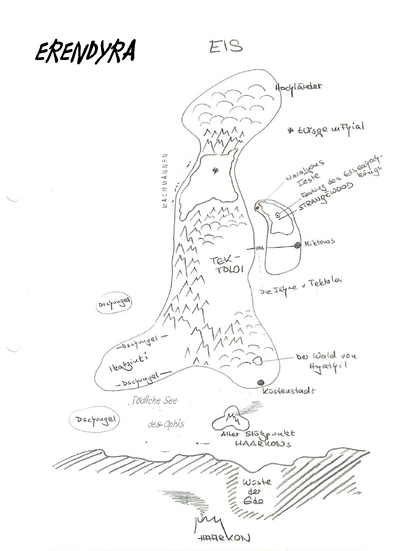 ERENDYRA
EIS
Hochländer
NACHTMANNEN
Naralyons
Feste
Festung des Eisenjoch-
königs
STRANGEWOOD
Miktonos
TEK-
TOLOI
Die Türme v. Tektoloi
Dschungel
Dschungel
Dschungel
Der Wald von
Hyathyil
Küstenstadt
Tödliche See
des Ophis
Dschungel
Alter Stützpunkt
HAARKONs
Wüste
der
Öde
HAARKON